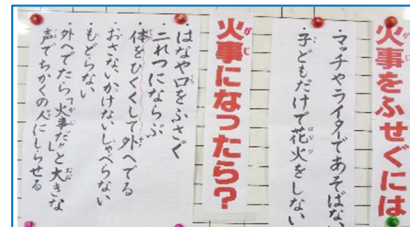 火事をふせぐには
・マッチやライターであそばない
・子どもだけで花火をしない
火事になったら？
・はなや口をふさぐ
・二れつにならぶ
体をひくくして外へでる
・おさない かけない しゃべらない
もどらない
・外へでたら“火事だ”と大きな
声でちかくの人にしらせる